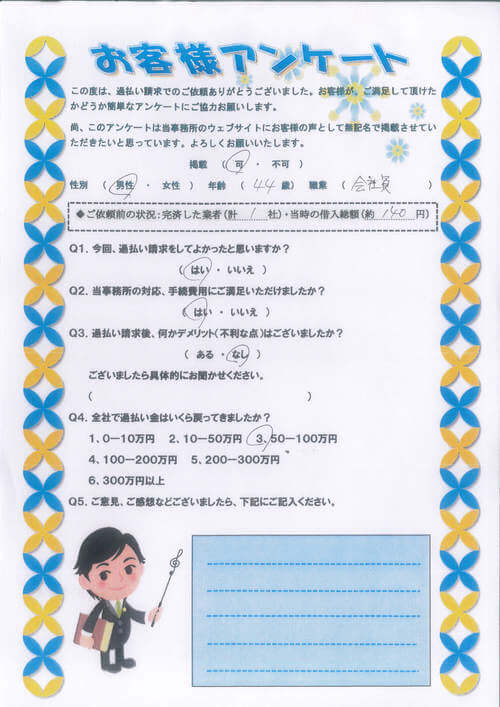 お客様アンケート
この度は、過払い請求でのご依頼ありがとうございました。お客様が、ご満足して頂けた
かどうか簡単なアンケートにご協力お願いします。
尚、このアンケートは当事務所のウェブサイトにお客様の声として無記名で掲載させてい
ただきたいと思っています。よろしくお願いいたします。
掲載 ( 可 ・ 不可 )
性別 ( 男性 ・ 女性 ) 年齢 ( 44 歳 ) 職業 ( 会社員 )
◆ご依頼前の状況：完済した業者(計 1 社)・当時の借入総額(約 140 円)
Q1. 今回、過払い請求をしてよかったと思いますか？
( はい ・ いいえ )
Q2. 当事務所の対応、手続費用にご満足いただけましたか？
( はい ・ いいえ )
Q3. 過払い請求後、何かデメリット(不利な点)はございましたか？
( ある ・ なし )
ございましたら具体的にお聞かせください。
( )
Q4. 全社で過払い金はいくら戻ってきましたか？
1、0－10万円 2、10－50万円 3、50－100万円
4、100－200万円 5、200－300万円
6、300万円以上
Q5. ご意見、ご感想などございましたら、下記にご記入ください。